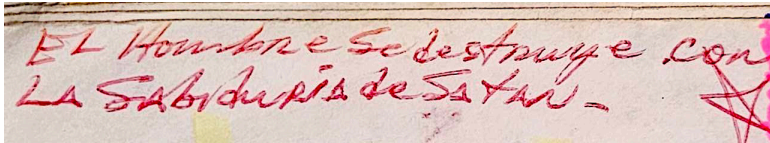 EL Hombre Se destruye con
LA SABiduRiA de SATAN-